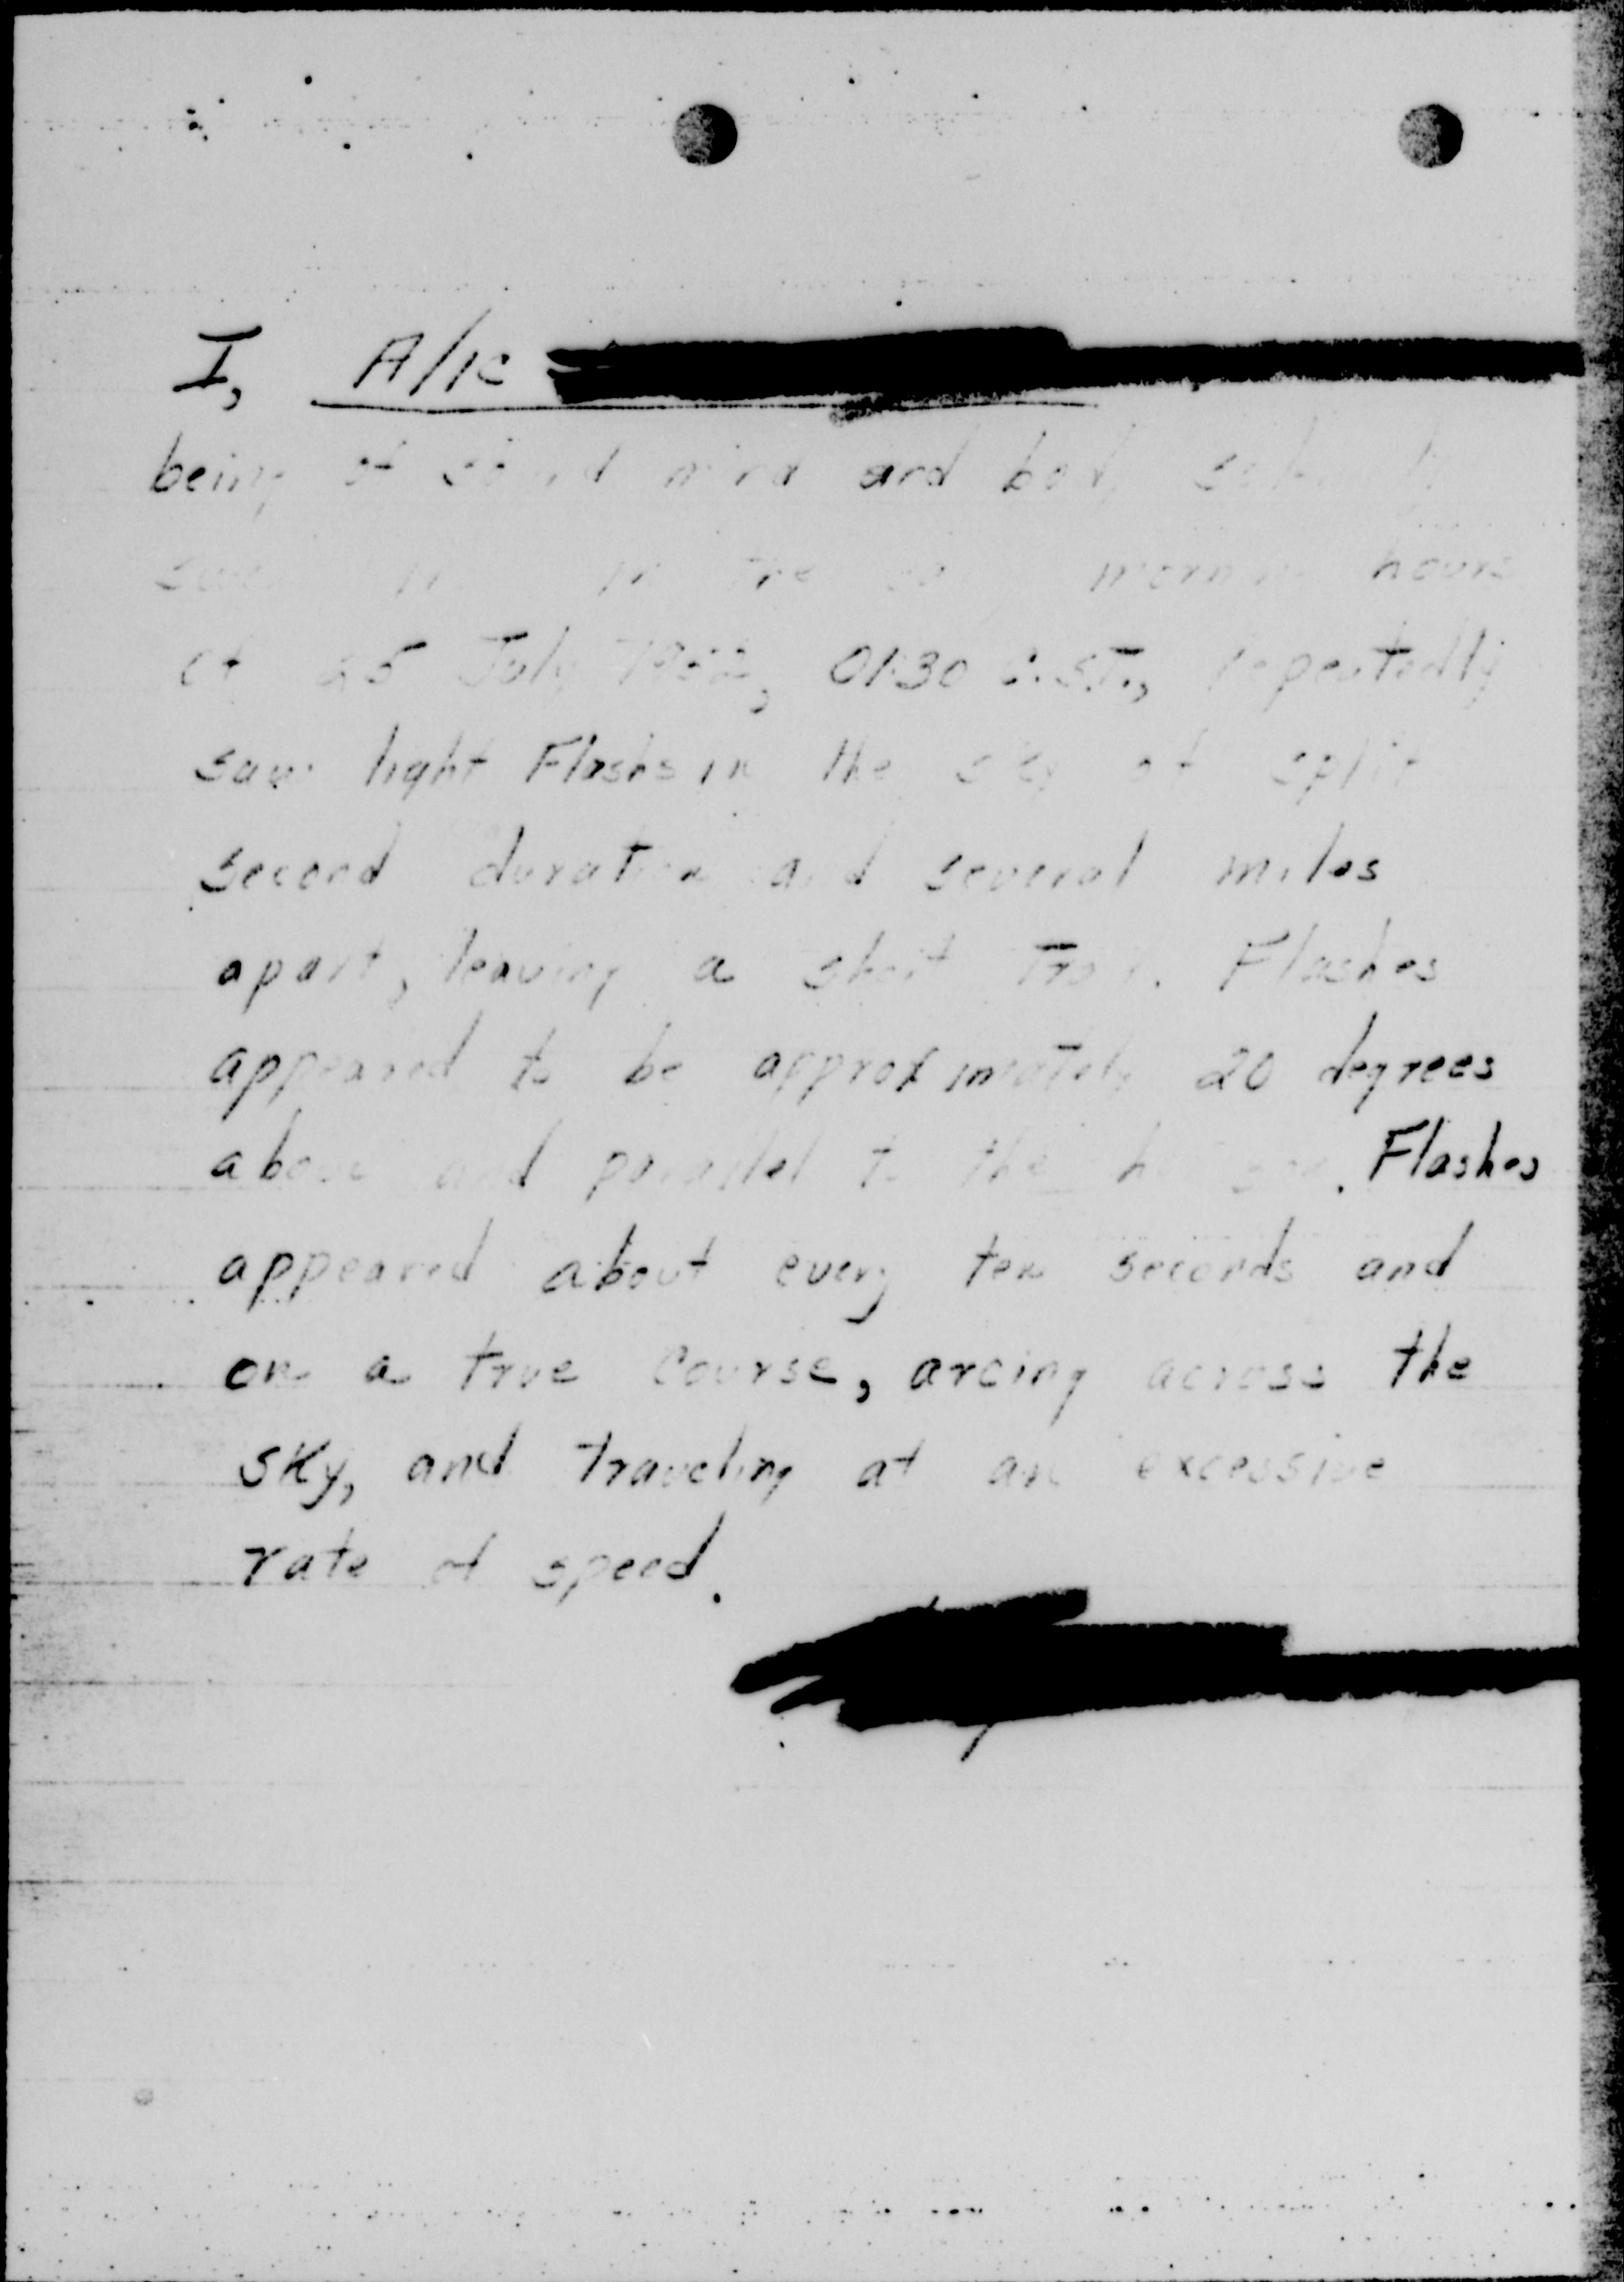 I, A/1C
being of sound mind and body
in the morning hours
of 25 July 1952, 0130 C.S.T., repeatedly
saw light Flashs in the sky of split
second duration and several miles
apart, leaving a short Flashes
appeared to be approximately 20 degrees
above and parallel to the horizon. Flashes
appeared about every ten seconds and
on a true course, arcing across the
sky, and traveling at an excessive
rate of speed.